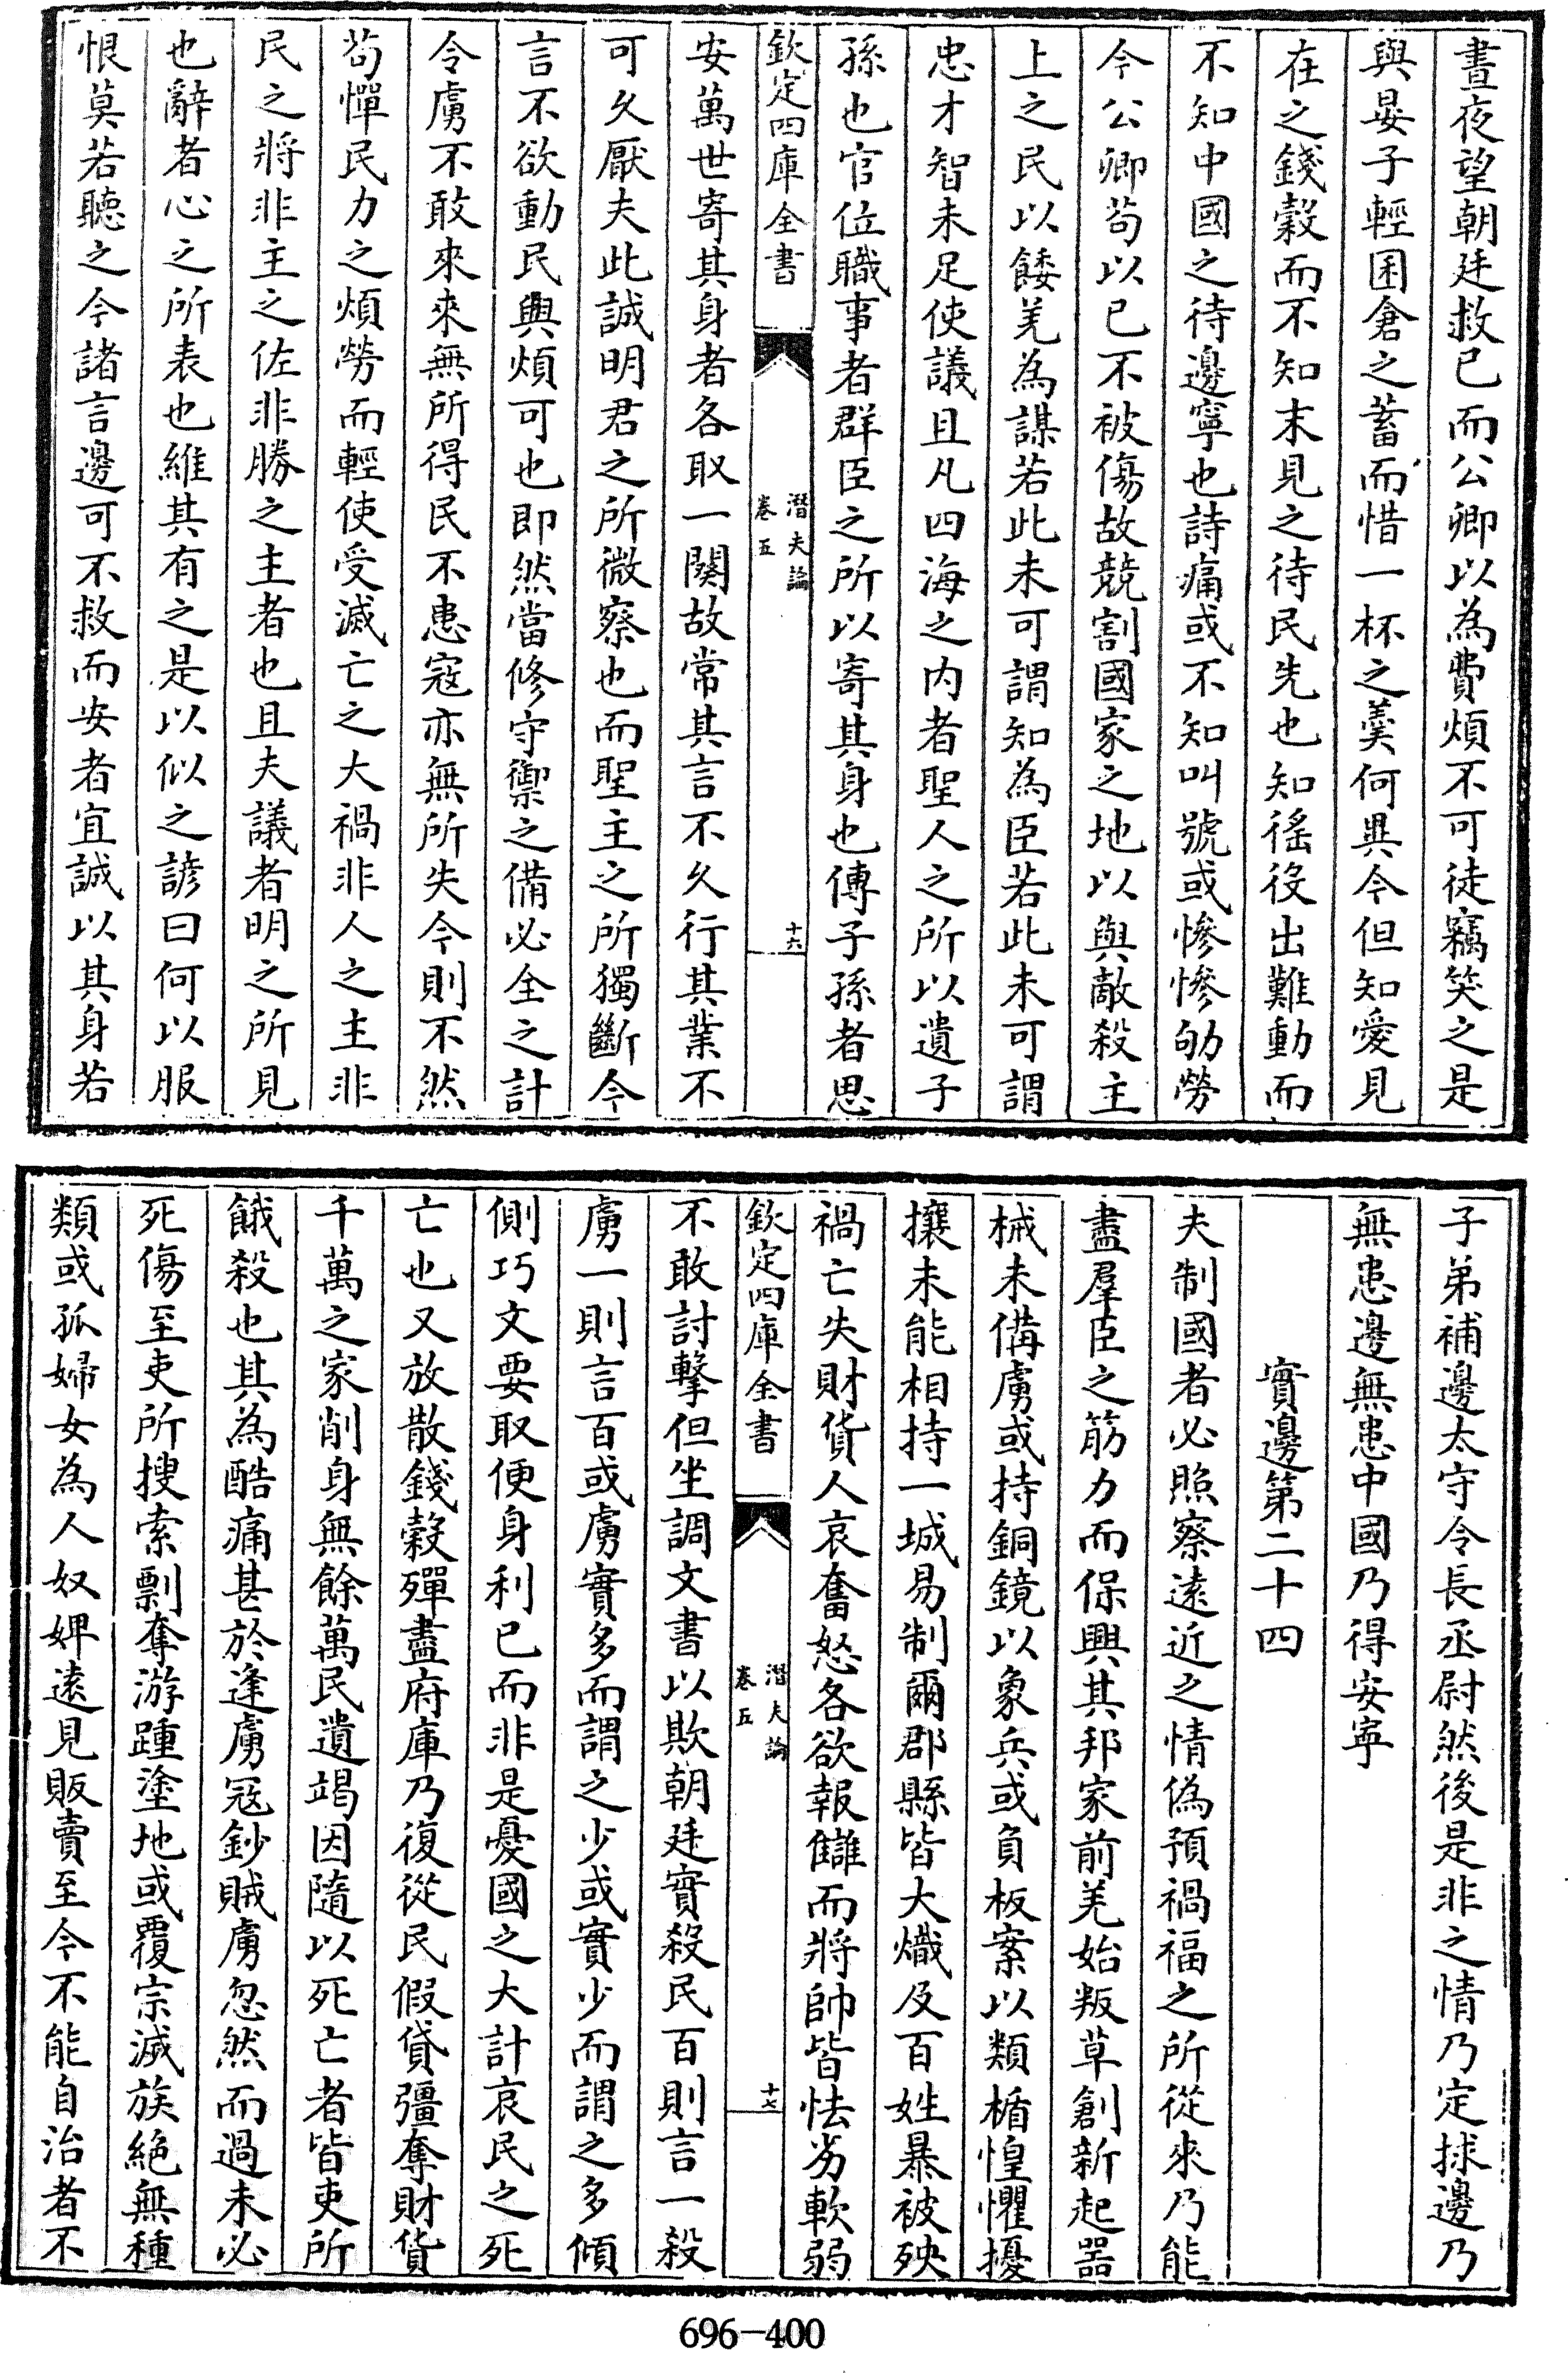 晝夜望朝廷救已而公卿以為費煩不可徒竊笑之是
與晏子輕囷倉之蓄而惜一杯之羮何異今但知愛見
在之錢糓而不知未見之待民先也知徭役出難動而
不知中國之待邊寧也詩痛或不知叫號或慘慘劬勞
今公卿茍以已不被傷故競割國家之地以與敵殺主
上之民以餧羌為謀若此未可謂知為臣若此未可謂
忠才智未足使議且凡四海之内者聖人之所以遺子
孫也官位職事者群臣之所以寄其身也傳子孫者思
欽定四庫全書
潛夫論
卷五
十六
安萬世寄其身者各取一闋故常其言不久行其業不
可久厭夫此誠明君之所微察也而聖主之所獨斷今
言不欲動民與煩可也即然當修守禦之備必全之計
令虜不敢來來無所得民不患寇亦無所失今則不然
茍憚民力之煩勞而輕使受滅亡之大禍非人之主非
民之將非主之佐非勝之主者也且夫議者明之所見
也辭者心之所表也維其有之是以似之諺曰何以服
恨莫若聽之今諸言邊可不救而安者宜誠以其身若
子弟補邊太守令長丞尉然後是非之情乃定捄邊乃
無患邊無患中國乃得安寧
實邊第二十四
夫制國者必照察遠近之情偽預禍福之所從來乃能
盡羣臣之筋力而保興其邦家前羌始叛草創新起器
械未備虜或持銅鏡以象兵或負板案以類楯惶懼擾
攘未能相持一城易制爾郡縣皆大熾及百姓暴被殃
禍亡失財貨人哀奮怒各欲報讎而將帥皆怯劣軟弱
欽定四庫全書
潛夫論
卷五
十七
不敢討擊但坐調文書以欺朝廷實殺民百則言一殺
虜一則言百或虜實多而謂之少或實少而謂之多傾
側巧文要取便身利已而非是憂國之大計哀民之死
亡也又放散錢糓殫盡府庫乃復從民假貸彊奪財貨
千萬之家削身無餘萬民遺竭因隨以死亡者皆吏所
餓殺也其為酷痛甚於逢虜寇鈔賊虜忽然而過未必
死傷至吏所搜索剽奪游踵塗地或覆宗滅族絶無種
類或孤婦女為人奴婢逺見販賣至今不能自治者不
696-400